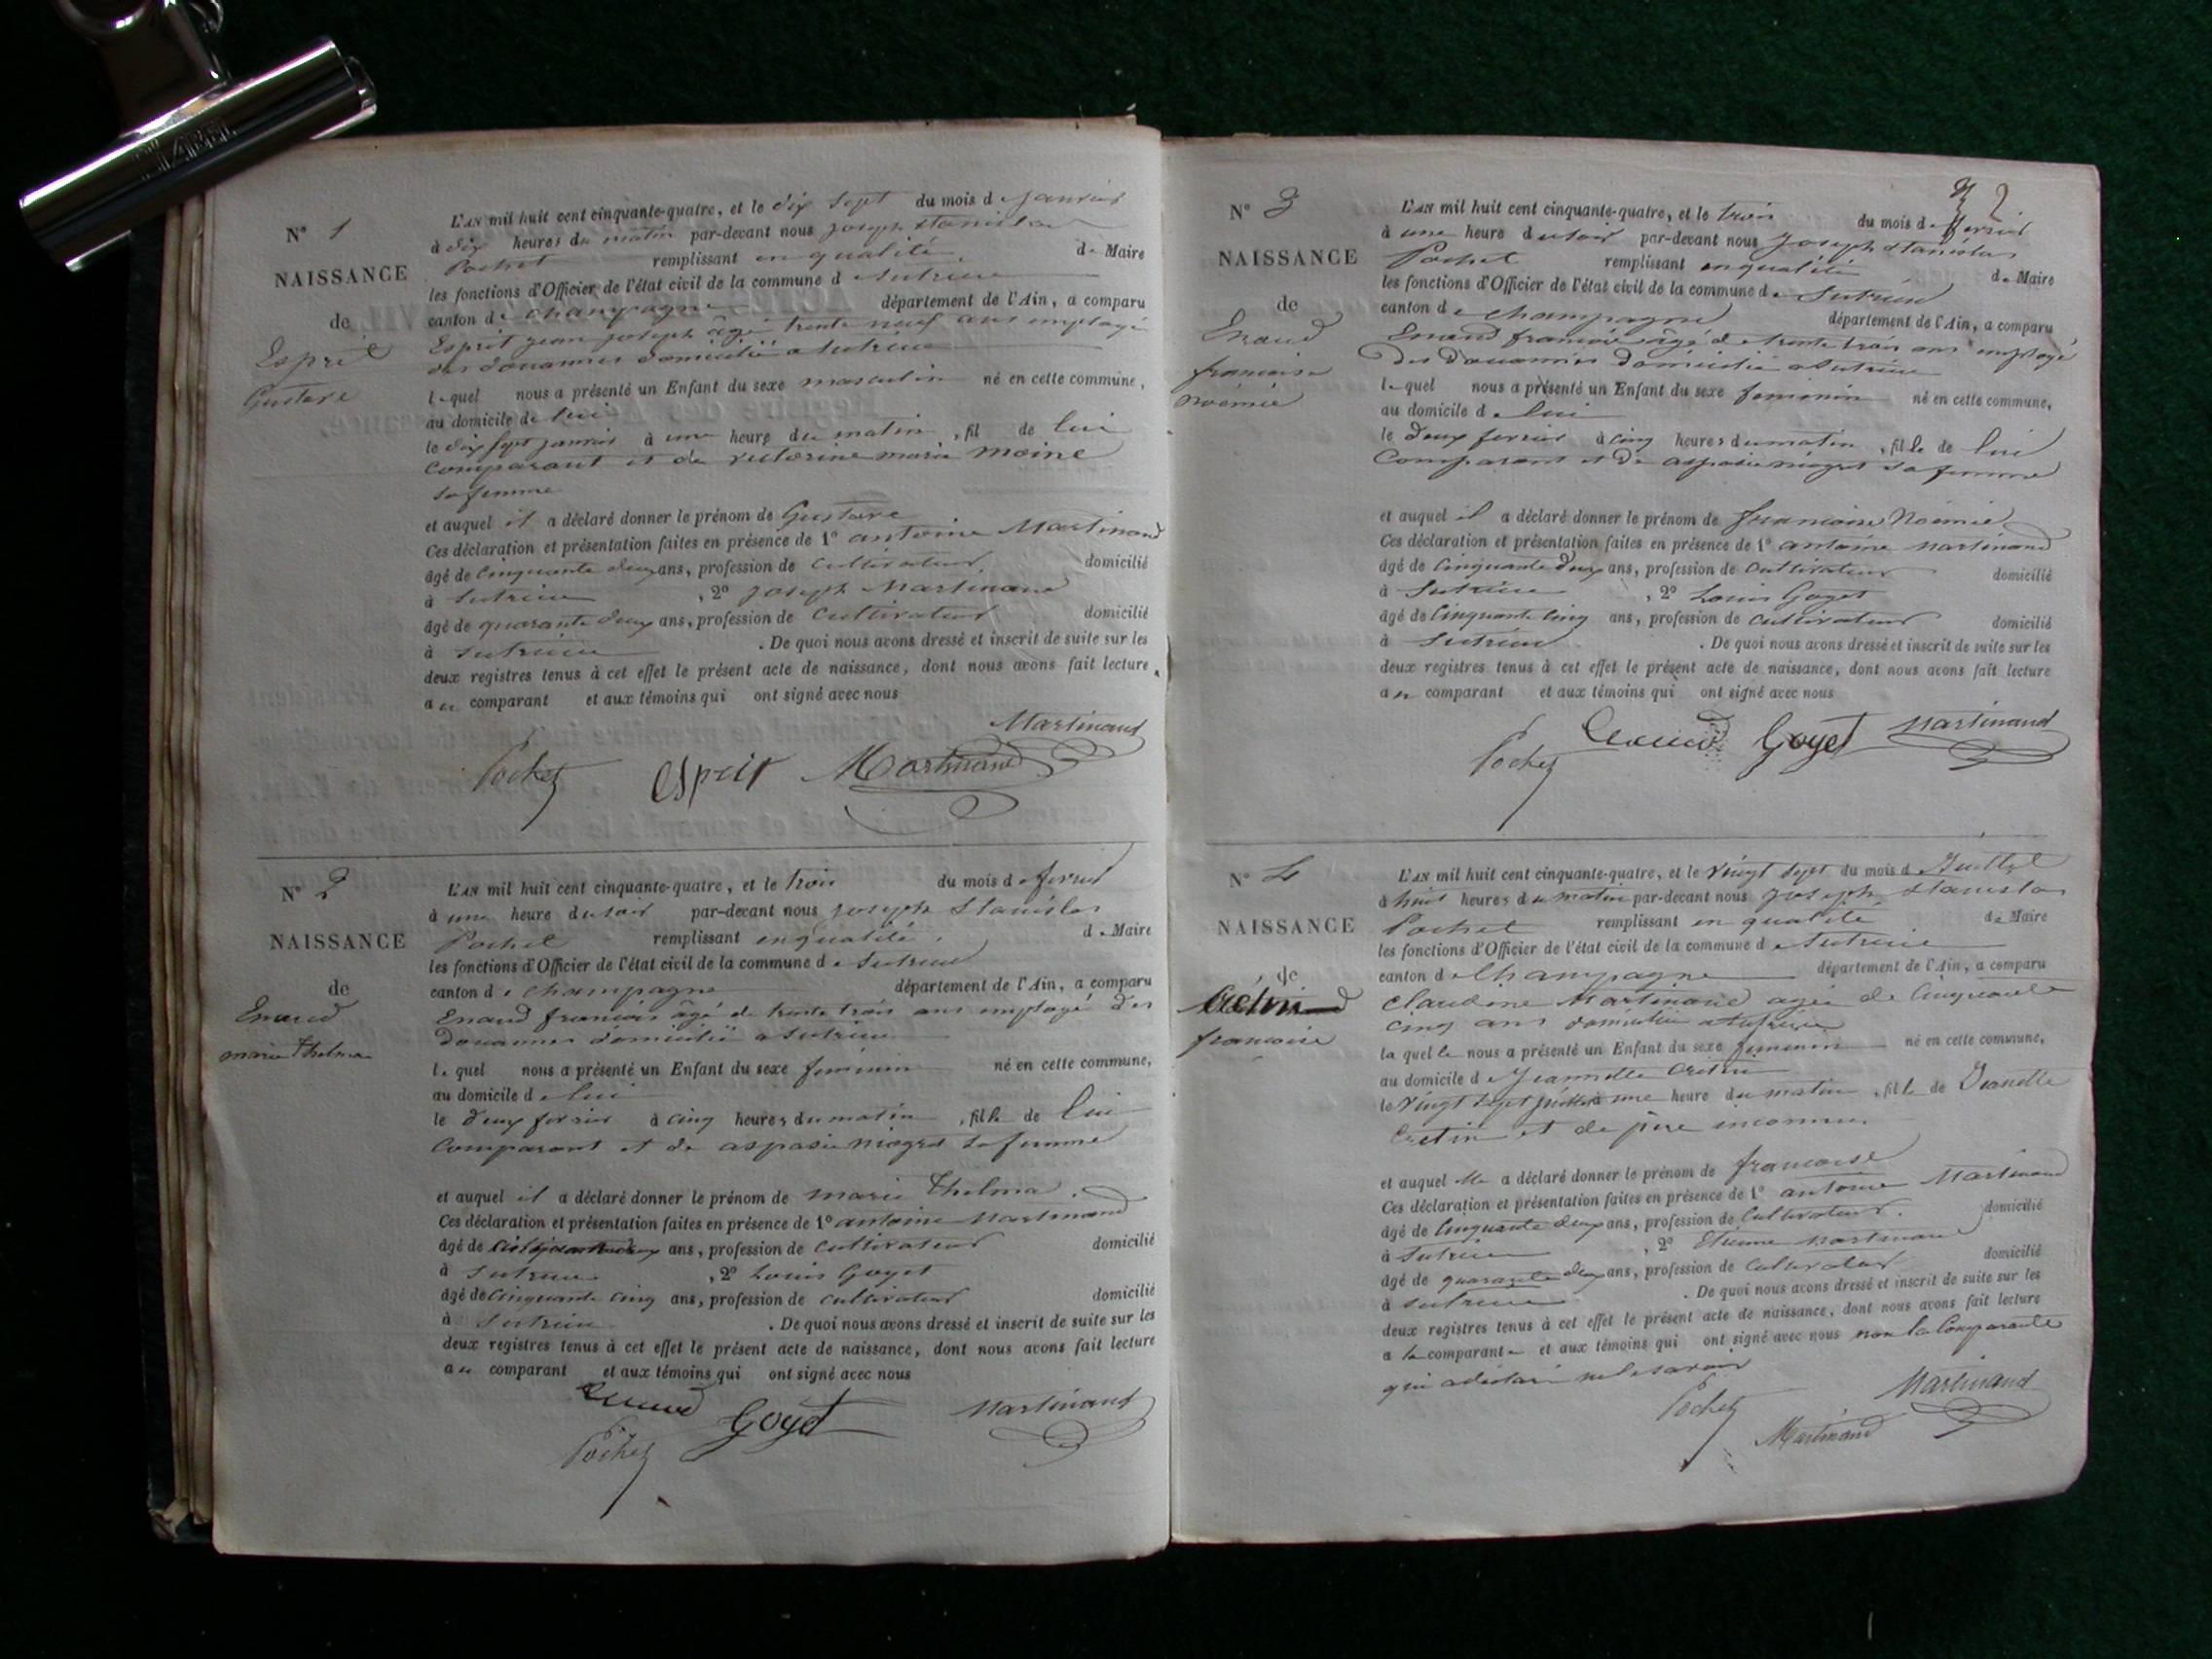 N° 1
NAISSANCE
de
Esprit
Gustave
L'AN mil huit cent cinquante-quatre, et le dix sept du mois d janvier
à dix heures du matin par-devant nous joseph stanislas
Pochet remplissant en qualité de Maire
les fonctions d'Officier de l'état civil de la commune d e Sutrieu
canton d e champagne département de l'Ain, a comparu
Esprit jean joseph âgé trente neuf ans employé
des douannes domicilié a Sutrieu
lequel nous a présenté un Enfant du sexe masculin né en cette commune,
au domicile de lui
le dix sept janvier à une heure du matin, fil de lui
comparant et de victorine marie moine
sa femme
et auquel il a déclaré donner le prénom de Gustave
Ces déclaration et présentation faites en présence de 1° antoine Martinand
âgé de cinquante deux ans, profession de cultivateur domicilié
à Sutrieu, 2° joseph Martinand
âgé de quarante deux ans, profession de cultivateur domicilié
à Sutrieu. De quoi nous avons dressé et inscrit de suite sur les
deux registres tenus à cet effet le présent acte de naissance, dont nous avons fait lecture
au comparant et aux témoins qui ont signé avec nous
Martinand
Pochet esprit Martinand
N° 2
NAISSANCE
de
Enaud
marie Thelma
L'AN mil huit cent cinquante-quatre, et le trois du mois d e fevrier
à une heure du soir par-devant nous joseph Stanislas
Pochet remplissant en qualité de Maire
les fonctions d'Officier de l'état civil de la commune d e Sutrieu
canton d e champagne département de l'Ain, a comparu
Enaud francois âgé de trente trois ans employé des
douannes domicilié a Sutrieu
lequel nous a présenté un Enfant du sexe féminin né en cette commune,
au domicile de lui
le deux fevrier à cinq heures du matin, fille de lui
comparant et de aspasie niogret sa femme
et auquel il a déclaré donner le prénom de marie Thelma
Ces déclaration et présentation faites en présence de 1° antoine Martinand
âgé de cinquante deux ans, profession de cultivateur domicilié
à Sutrieu, 2° Louis Goyet
âgé de cinquante cinq ans, profession de cultivateur domicilié
à Sutrieu. De quoi nous avons dressé et inscrit de suite sur les
deux registres tenus à cet effet le présent acte de naissance, dont nous avons fait lecture
au comparant et aux témoins qui ont signé avec nous
Enaud Goyet Martinand
Pochet
2
N° 3
NAISSANCE
de
Enaud
francoise
noémie
L'AN mil huit cent cinquante-quatre, et le trois du mois d e fevrier
à une heure du soir par-devant nous joseph stanislas
Pochet remplissant en qualité de Maire
les fonctions d'Officier de l'état civil de la commune d e Sutrieu
canton d e champagne département de l'Ain, a comparu
Enaud francois âgé de trente trois ans employé
des douannes domicilié a Sutrieu
lequel nous a présenté un Enfant du sexe feminin né en cette commune,
au domicile de lui
le deux fevrier à cinq heures du matin, fille de lui
comparant et de aspasie niogret sa femme
et auquel il a déclaré donner le prénom de francoise Noémie
Ces déclaration et présentation faites en présence de 1° antoine martinand
âgé de cinquante deux ans, profession de cultivateur domicilié
à Sutrieu, 2° Louis Goyet
âgé de cinquante cinq ans, profession de cultivateur domicilié
à Sutrieu. De quoi nous avons dressé et inscrit de suite sur les
deux registres tenus à cet effet le présent acte de naissance, dont nous avons fait lecture
au comparant et aux témoins qui ont signé avec nous
Enaud Goyet Martinand
Pochet
N° 4
NAISSANCE
de
Cretin
francoise
L'AN mil huit cent cinquante-quatre, et le vingt sept du mois d e Juillet
à huit heures du matin par-devant nous joseph Stanislas
Pochet remplissant en qualité de Maire
les fonctions d'Officier de l'état civil de la commune d e Sutrieu
canton d e Champagne département de l'Ain, a comparu
claudine Martinand agée de cinquante
cinq ans domicilié a Sutrieu
laquelle nous a présenté un Enfant du sexe feminin né en cette commune,
au domicile d e Jeannette Cretin
le vingt sept juillet à une heure du matin, fille de Jeanette
Cretin et de père inconnu
et auquel elle a déclaré donner le prénom de francoise
Ces déclaration et présentation faites en présence de 1° antoine Martinand
âgé de cinquante deux ans, profession de cultivateur domicilié
à Sutrieu, 2° Etienne martinand
âgé de quarante deux ans, profession de cultivateur domicilié
à Sutrieu. De quoi nous avons dressé et inscrit de suite sur les
deux registres tenus à cet effet le présent acte de naissance, dont nous avons fait lecture
a la comparante et aux témoins qui ont signé avec nous non la comparante
qui a déclaré ne le savoir
Pochet Martinand
Martinand